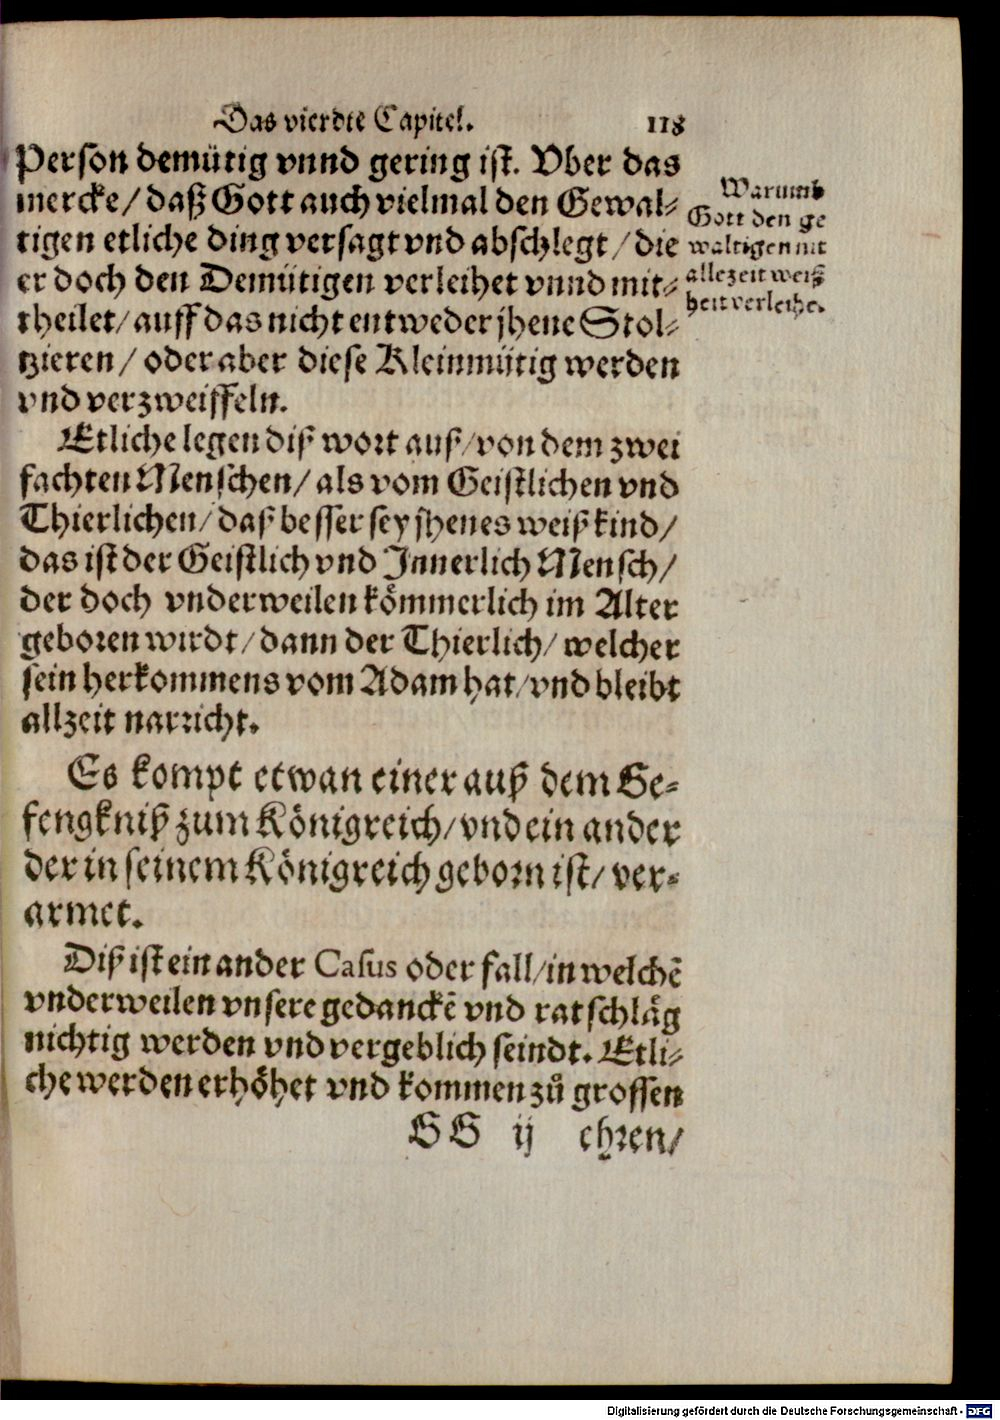 Das vierdte Capitel. 118
Person demütig vnnd gering ist. Vber das
mercke/ daß Gott auch vielmal den Gewal-
tigen etliche ding versagt vnd abschlegt/ die
er doch den Demütigen verleihet vnnd mit-
theilet/ auff das nicht entweder jhene Stol-
tzieren/ oder aber diese Kleinmütig werden
vnd verzweiffeln.
Warumb
Gott den ge
waltigen nit
allezeit weiß
heit verleihe.
Etliche legen diß wort auß/ von dem zwei
fachten Menschen/ als vom Geistlichen vnd
Thierlichen/ daß besser sey jhenes weiß kind/
das ist der Geistlich vnd Innerlich Mensch/
der doch vnderweilen kömmerlich im Alter
geboren wirdt/ dann der Thierlich/ welcher
sein herkommens vom Adam hat/ vnd bleibt
allzeit narricht.
Es kompt etwan einer auß dem Ge-
fengkniß zum Königreich/ vnd ein ander
der in seinem Königreich geborn ist/ ver-
armet.
Diß ist ein ander Casus oder fall/ in welchē
vnderweilen vnsere gedanckē vnd ratschläg
nichtig werden vnd vergeblich seindt. Etli-
che werden erhöhet vnd kommen zů grossen
GG ij ehren/
Digitalisierung gefördert durch die Deutsche Forschungsgemeinschaft - DFG